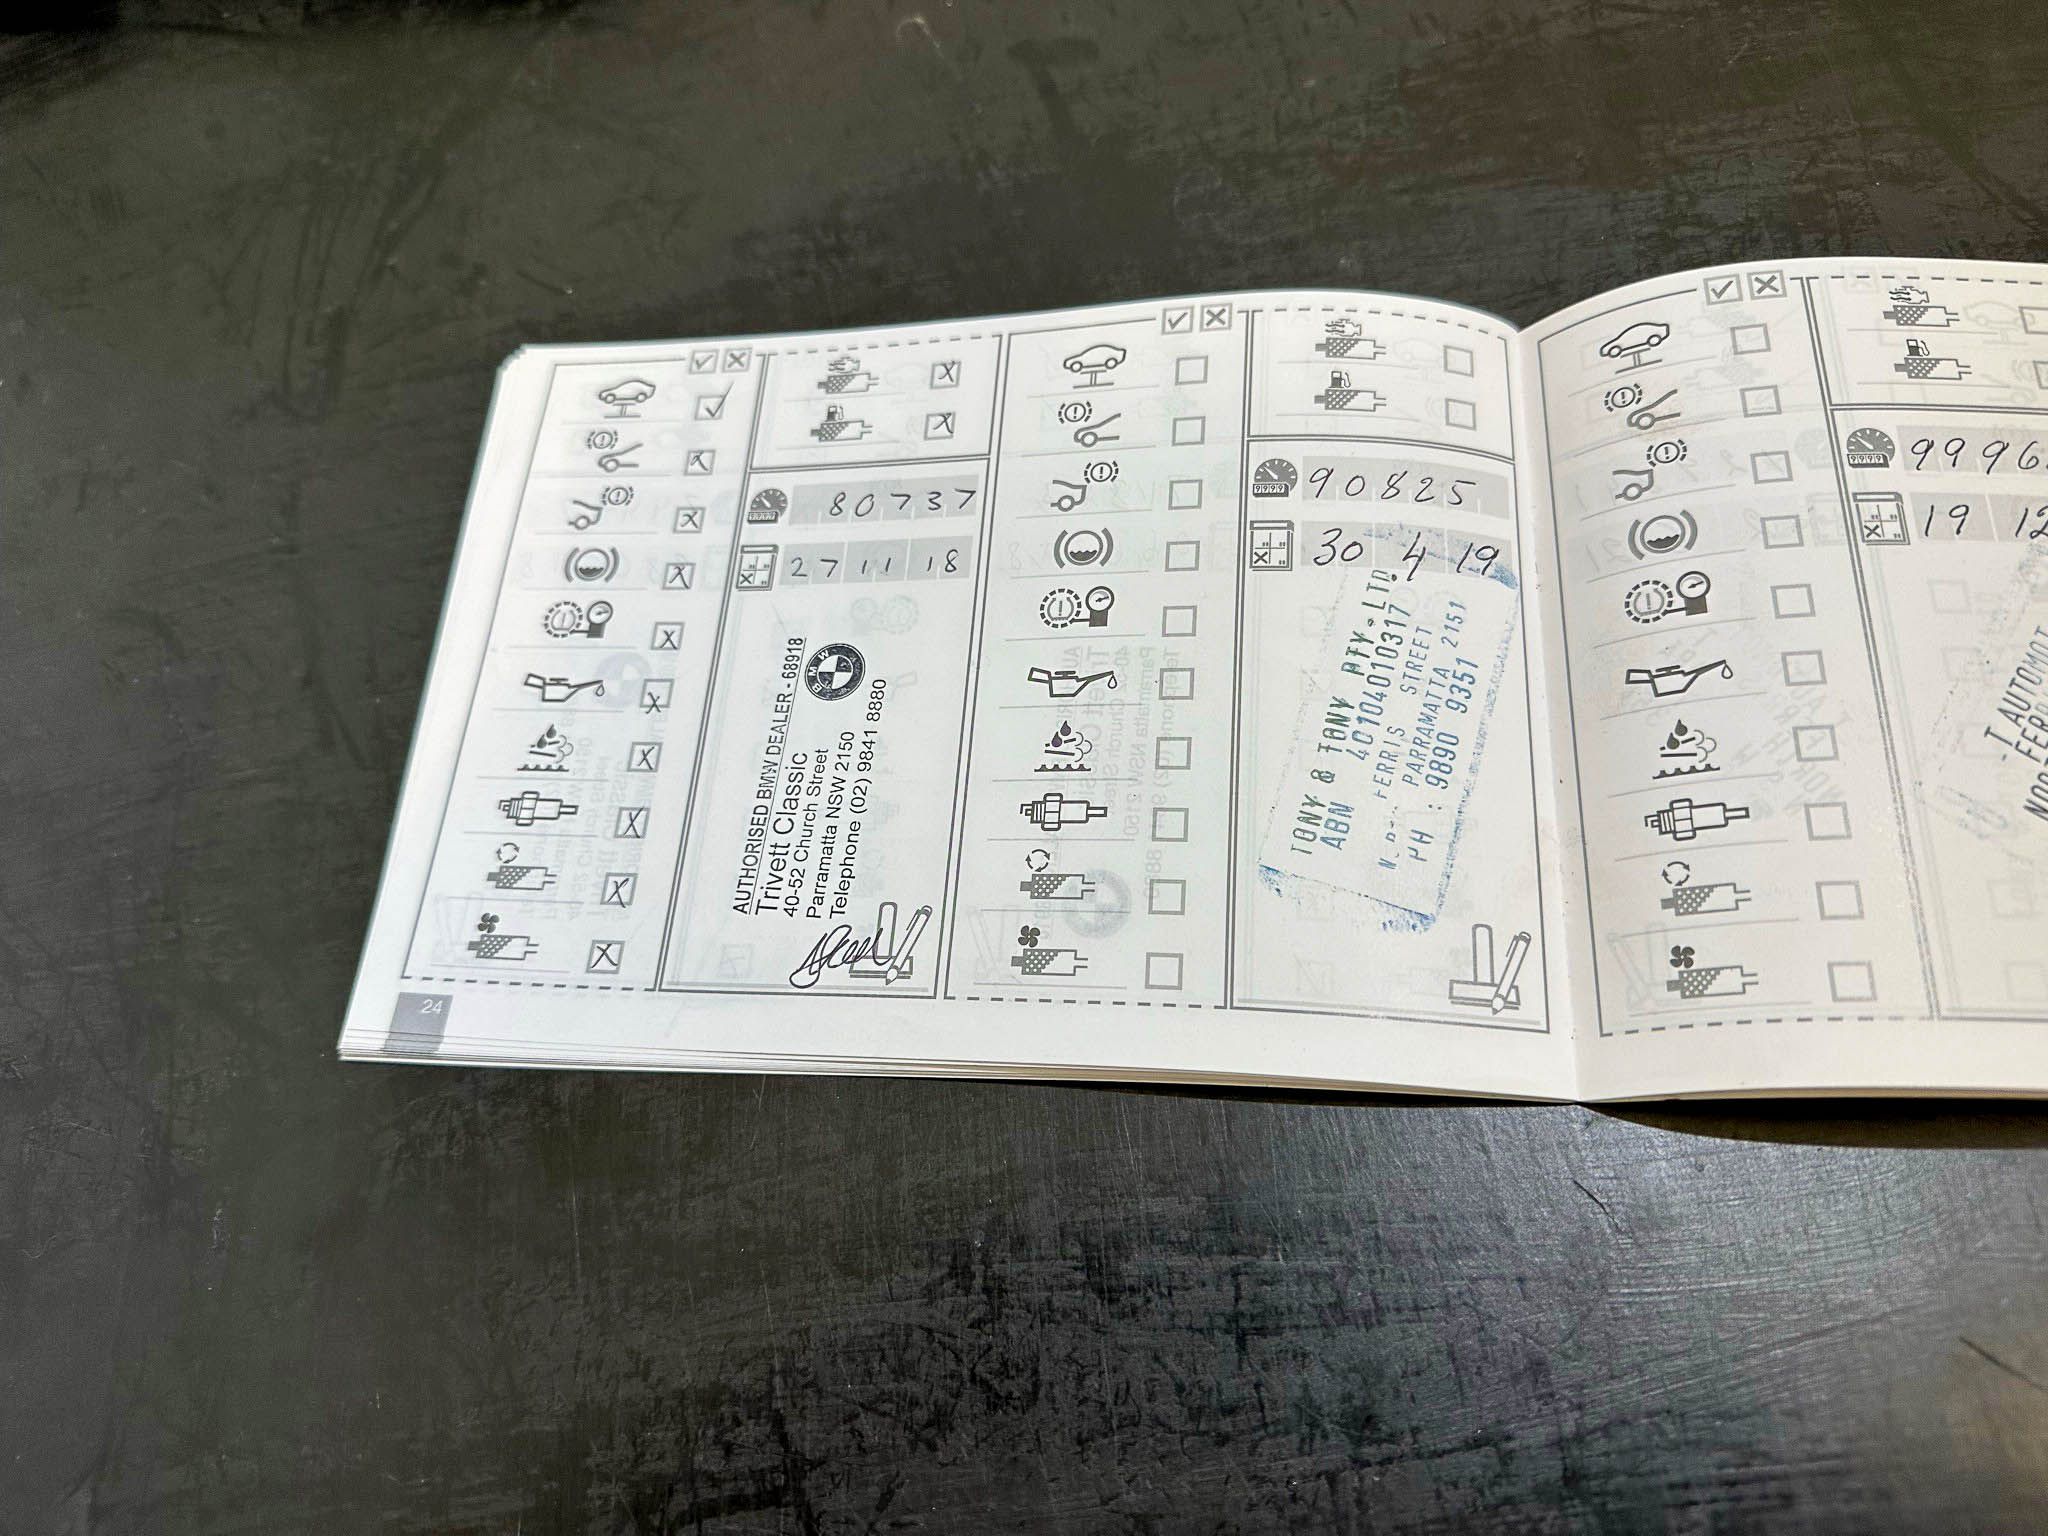 80737
27 11 18
AUTHORISED BMW DEALER - 68918
Trivett Classic
40-52 Church Street
Parramatta NSW 2150
Telephone (02) 9841 8880
BMW
24
90825
30 4 19
TONY & TONY PTY. LTD.
ABN 40104010317
FERRIS STREET
PARRAMATTA 2151
PH : 9890 9351
9996
19 12
T AUTOMOT
FER